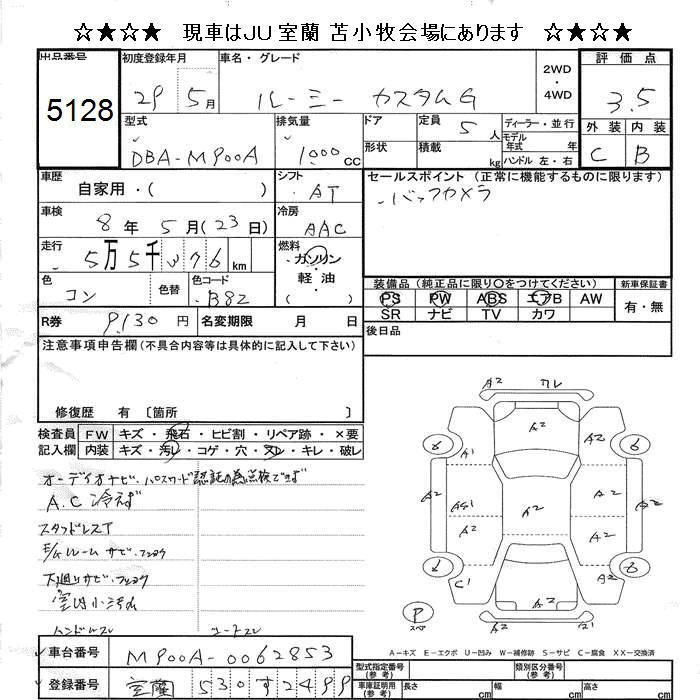 ☆★☆★ 現車はJU室蘭 苫小牧会場にあります ☆★☆★
出品番号
5128
初度登録年月
29 5月
車名・グレード
ルーミー カスタムG
2WD
・
4WD
評価点
3.5
外装 内装
C B
型式
DBA-M900A
排気量
1000cc
ドア
形状
定員 5人
積載 kg
ディーラー・並行
モデル年式 年式
ハンドル 左・右
車歴
自家用・( )
シフト
AT
セールスポイント (正常に機能するものに限ります)
バックカメラ
車検
8年 5月(23日)
冷房
AAC
走行
5万5千 76km
燃料
ガソリン
軽・油
( )
色
コン
色替
色コード
B82
装備品 (純正品に限り〇をつけてください)
PS PW ABS エアB AW
SR ナビ TV カワ
新車保証書
有・無
R券 9,130円
名変期限 月 日
後日品
注意事項申告欄(不具合内容等は具体的に記入して下さい)
修復歴 有 〔箇所 〕
検査員記入欄
FW キズ・飛石・ヒビ割・リペア跡・×要
内装 キズ・汚レ・コゲ・穴・スレ・キレ・破レ
オーディオナビ、パスワード認証の為点検できず
A.C 冷えず
スタッドレスT
E/Gルーム サビ・フショク
下廻りサビ・フショク
室内小汚れ
ハンドルスレ コートスレ
A2 ワレ
A2
A2
A2
6
6
A1
A2
AG1
A2
A2
A2
A2
A2
A2
6
6
C1
A2
A2
A2
A2
P
スペア
A-キズ E-エクボ U-凹み W-補修跡 S-サビ C-腐食 XX-交換済
車台番号 M900A-0062853
登録番号 室蘭 530す2499
型式指定番号(参考)
類別区分番号(参考)
車庫証明用(参考) 長さ cm 幅 cm 高さ cm